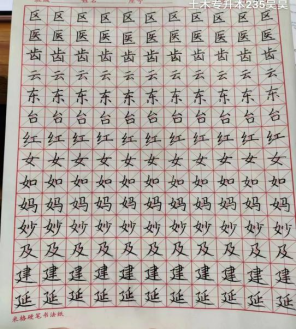 土木专升本235
区区区区区区区区区区区
医医医医医医医医医医医
齿齿齿齿齿齿齿齿齿齿齿
云云云云云云云云云云云
东东东东东东东东东东东
台台台台台台台台台台台
红红红红红红红红红红红
女女女女女女女女女女女
如如如如如如如如如如如
妈妈妈妈妈妈妈妈妈妈妈
妙妙妙妙妙妙妙妙妙妙妙
及及及及及及及及及及及
建建建建建建建建建建建
延延延延延延延延延延延
米格硬笔书法纸